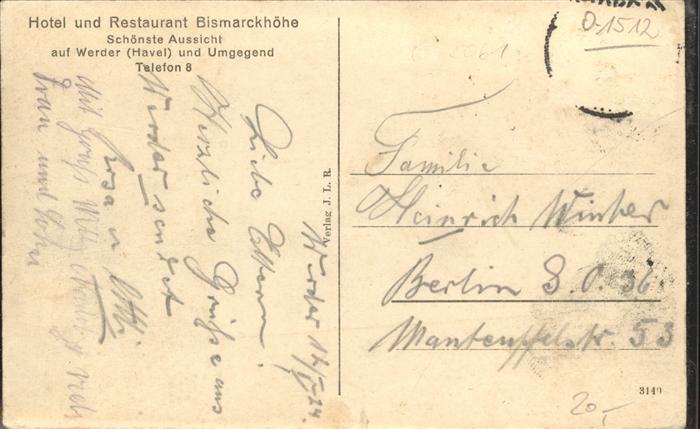 Hotel und Restaurant Bismarckhöhe
Schönste Aussicht
auf Werder (Havel) und Umgegend
Telefon 8
Werder 12/V.24.
Liebe Eltern.
Herzliche Grüße aus
Werder sendet
Rosa u Otti.
Mit Gruß
Frau und
Verlag J. L. R.
Familie
Heinrich Winter
Berlin S.O. 36
Manteuffelstr. 53
3149
0-1512
20,-